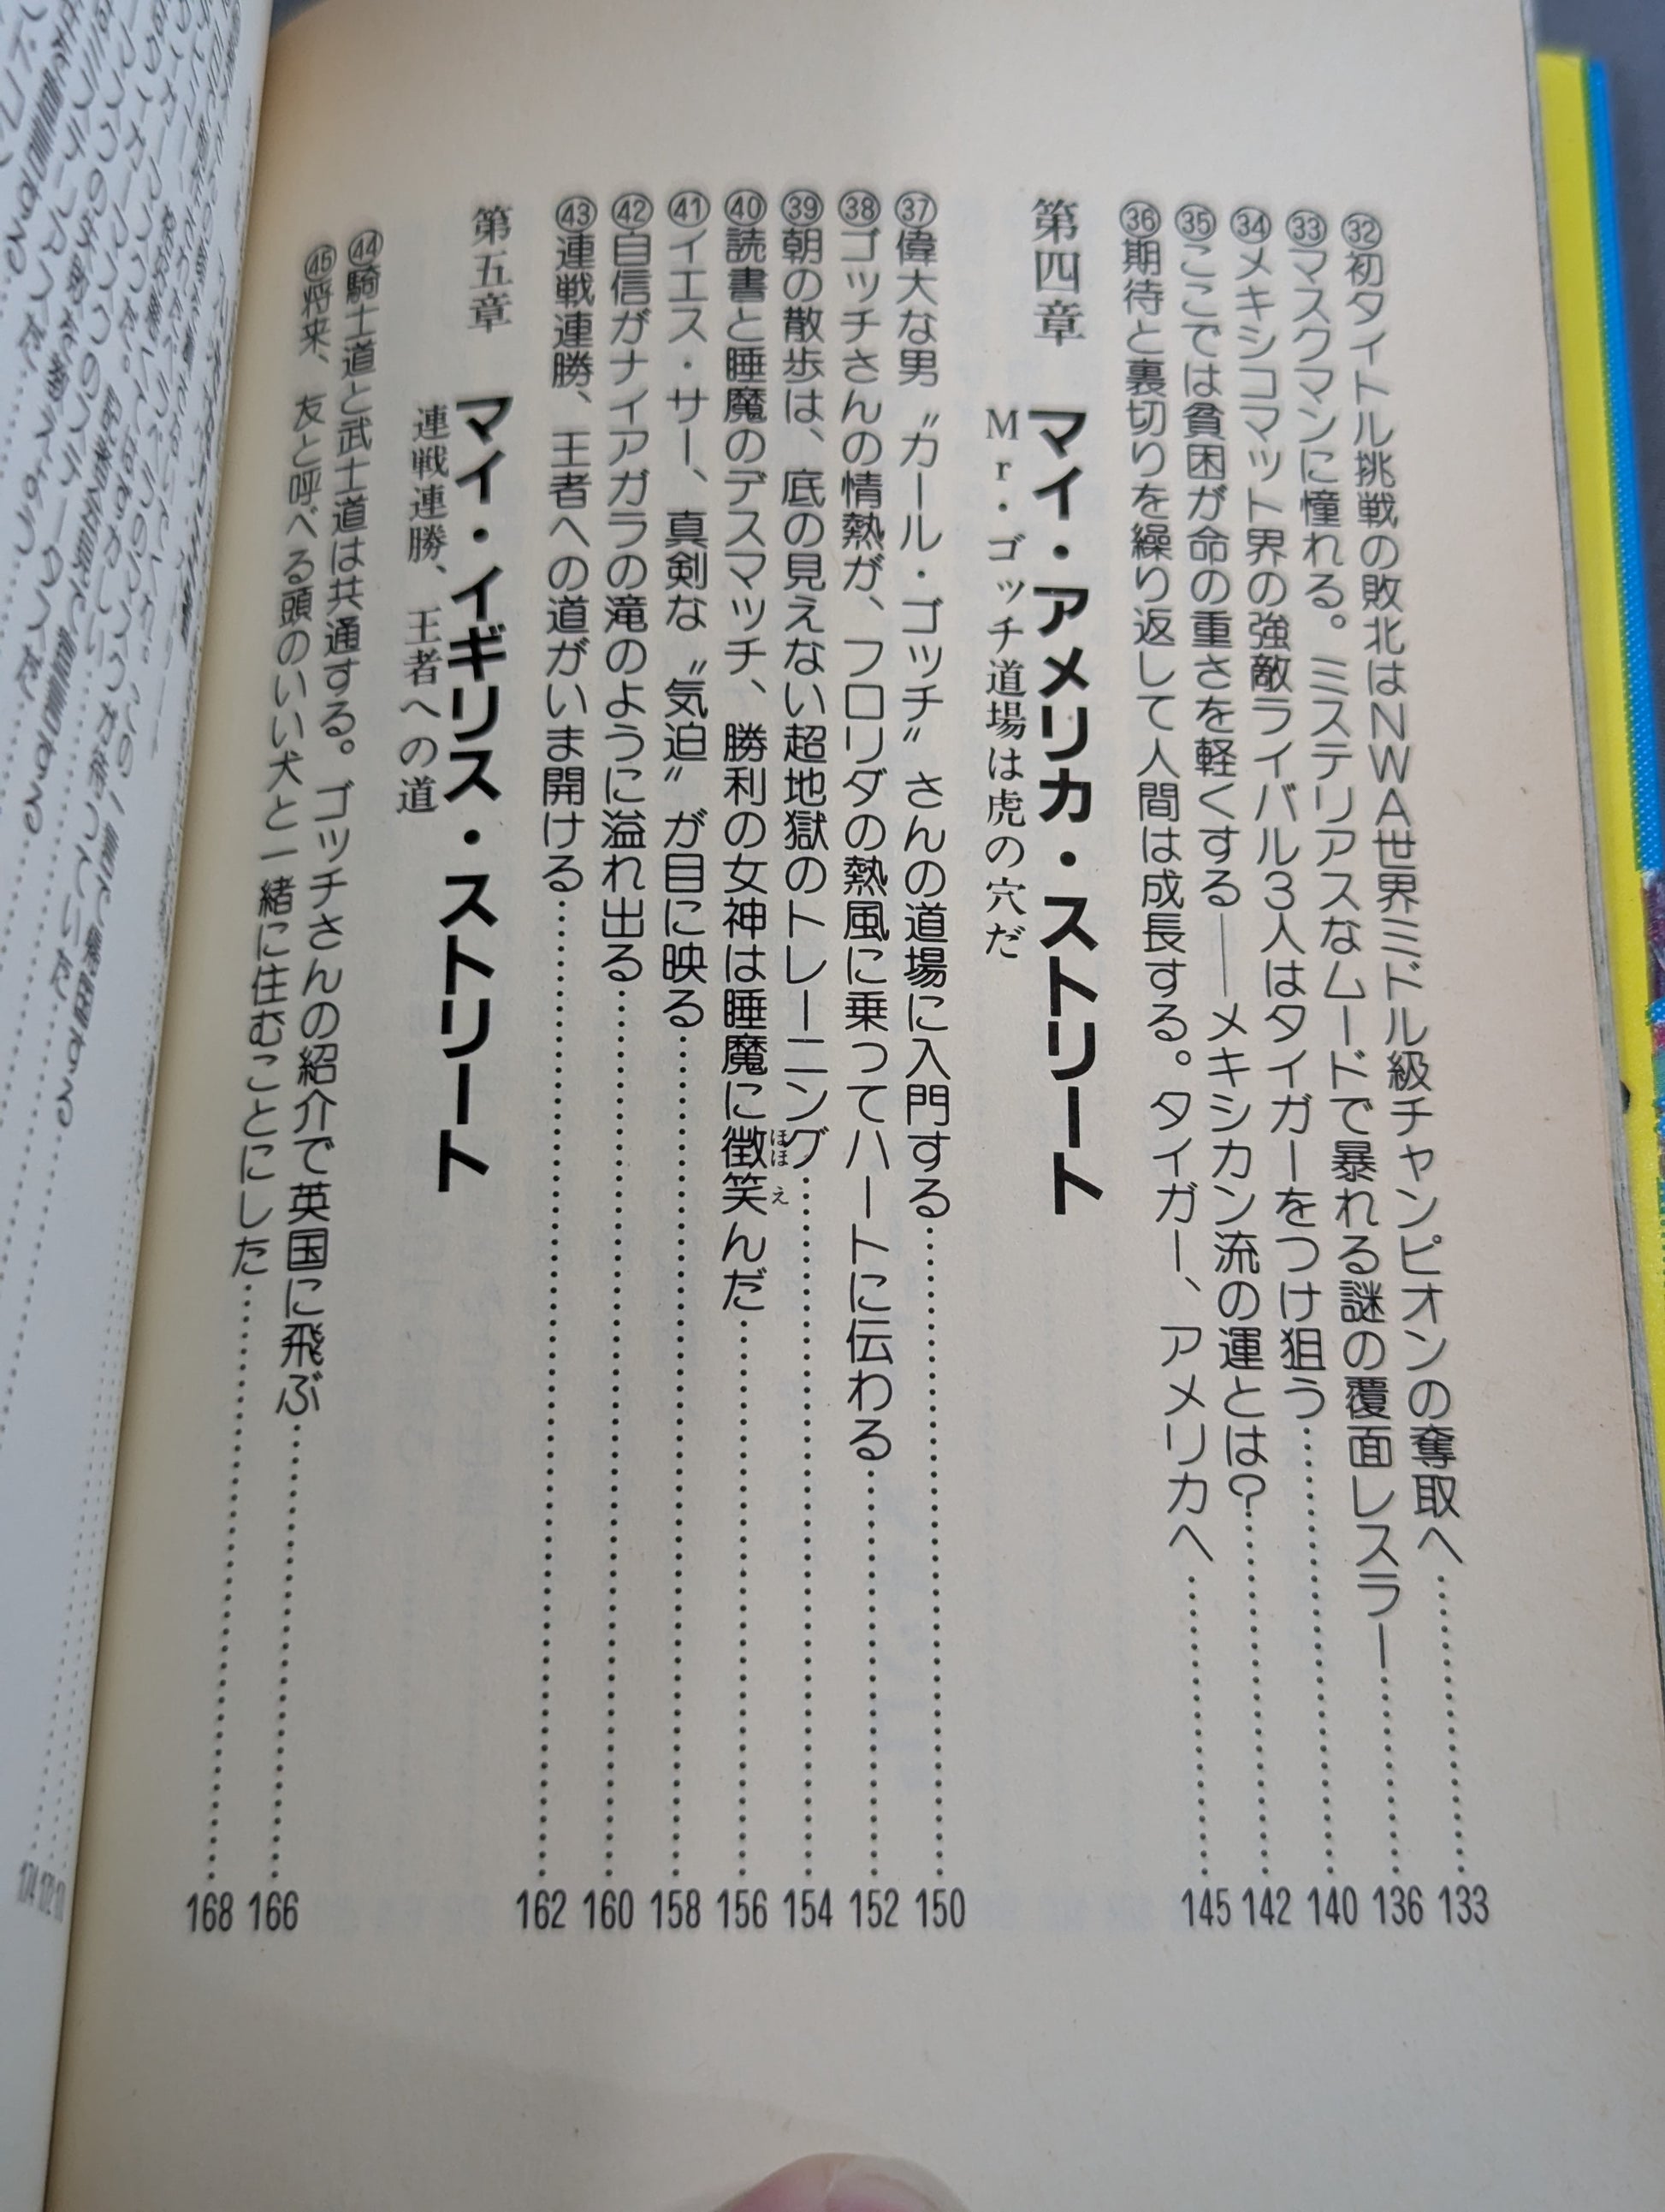 ㉜初タイトル挑戦の敗北はNWA世界ミドル級チャンピオンの奪取へ……………133
㉝マスクマンに憧れる。ミステリアスなムードで暴れる謎の覆面レスラー……………136
㉞メキシコマット界の強敵ライバル3人はタイガーをつけ狙う……………140
㉟ここでは貧困が命の重さを軽くする——メキシカン流の運とは?……………142
㊱期待と裏切りを繰り返して人間は成長する。タイガー、アメリカへ……………145
第四章 マイ・アメリカ・ストリート
Mr・ゴッチ道場は虎の穴だ
㊲偉大な男〝カール・ゴッチ〟さんの道場に入門する……………150
㊳ゴッチさんの情熱が、フロリダの熱風に乗ってハートに伝わる……………152
㊴朝の散歩は、底の見えない超地獄のトレーニング……………154
㊵読書と睡魔のデスマッチ、勝利の女神は睡魔に微笑んだ……………156
ほほえ
㊶イエス・サー、真剣な〝気迫〟が目に映る……………158
㊷自信がナイアガラの滝のように溢れ出る……………160
㊸連戦連勝、王者への道がいま開ける……………162
第五章 マイ・イギリス・ストリート
連戦連勝、王者への道
㊹騎士道と武士道は共通する。ゴッチさんの紹介で英国に飛ぶ……………166
㊺将来、友と呼べる頭のいい犬と一緒に住むことにした……………168